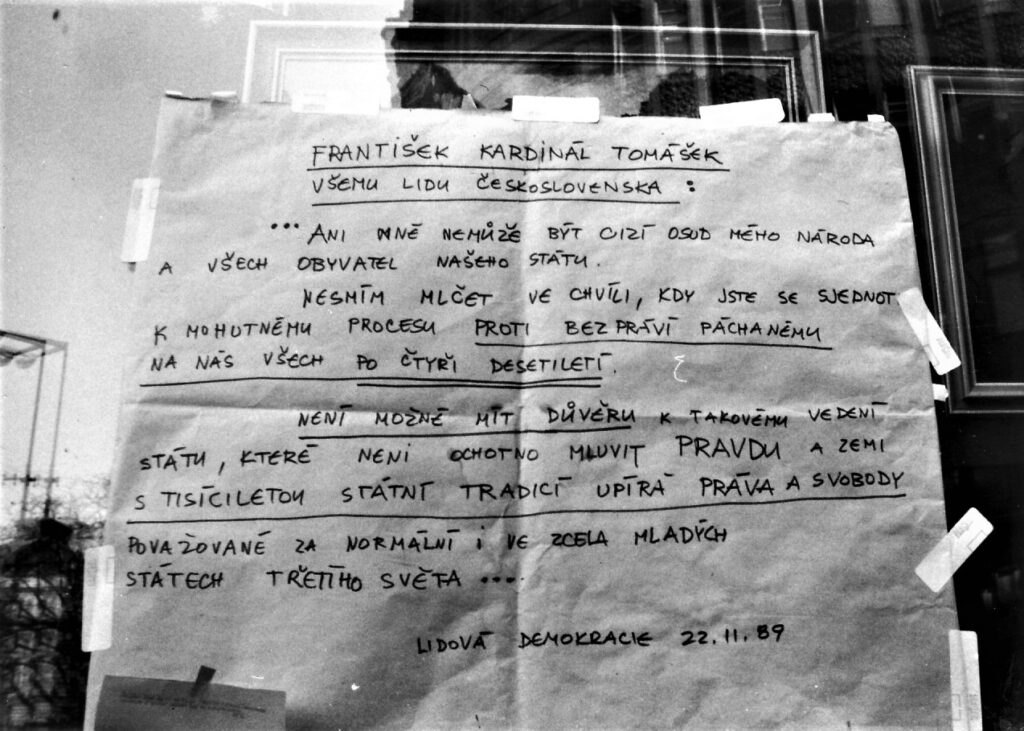 FRANTIŠEK KARDINÁL TOMÁŠEK
VŠEMU LIDU ČESKOSLOVENSKA :
... ANI MNĚ NEMŮŽE BÝT CIZÍ OSUD MÉHO NÁRODA
A VŠECH OBYVATEL NAŠEHO STÁTU.
NESMÍM MLČET VE CHVÍLI, KDY JSTE SE SJEDNOT.
K MOHUTNÉMU PROCESU PROTI BEZPRÁVÍ PÁCHANÉMU
NA NÁS VŠECH PO ČTYŘI DESETILETÍ.
NENÍ MOŽNÉ MÍT DŮVĚRU K TAKOVÉMU VEDENÍ
STÁTU, KTERÉ NENÍ OCHOTNO MLUVIT PRAVDU A ZEMI
S TISÍCILETOU STÁTNÍ TRADICÍ UPÍRÁ PRÁVA A SVOBODY
POVAŽOVANÉ ZA NORMÁLNÍ I VE ZCELA MLADÝCH
STÁTECH TŘETÍHO SVĚTA ....
LIDOVÁ DEMOKRACIE 22.11.89